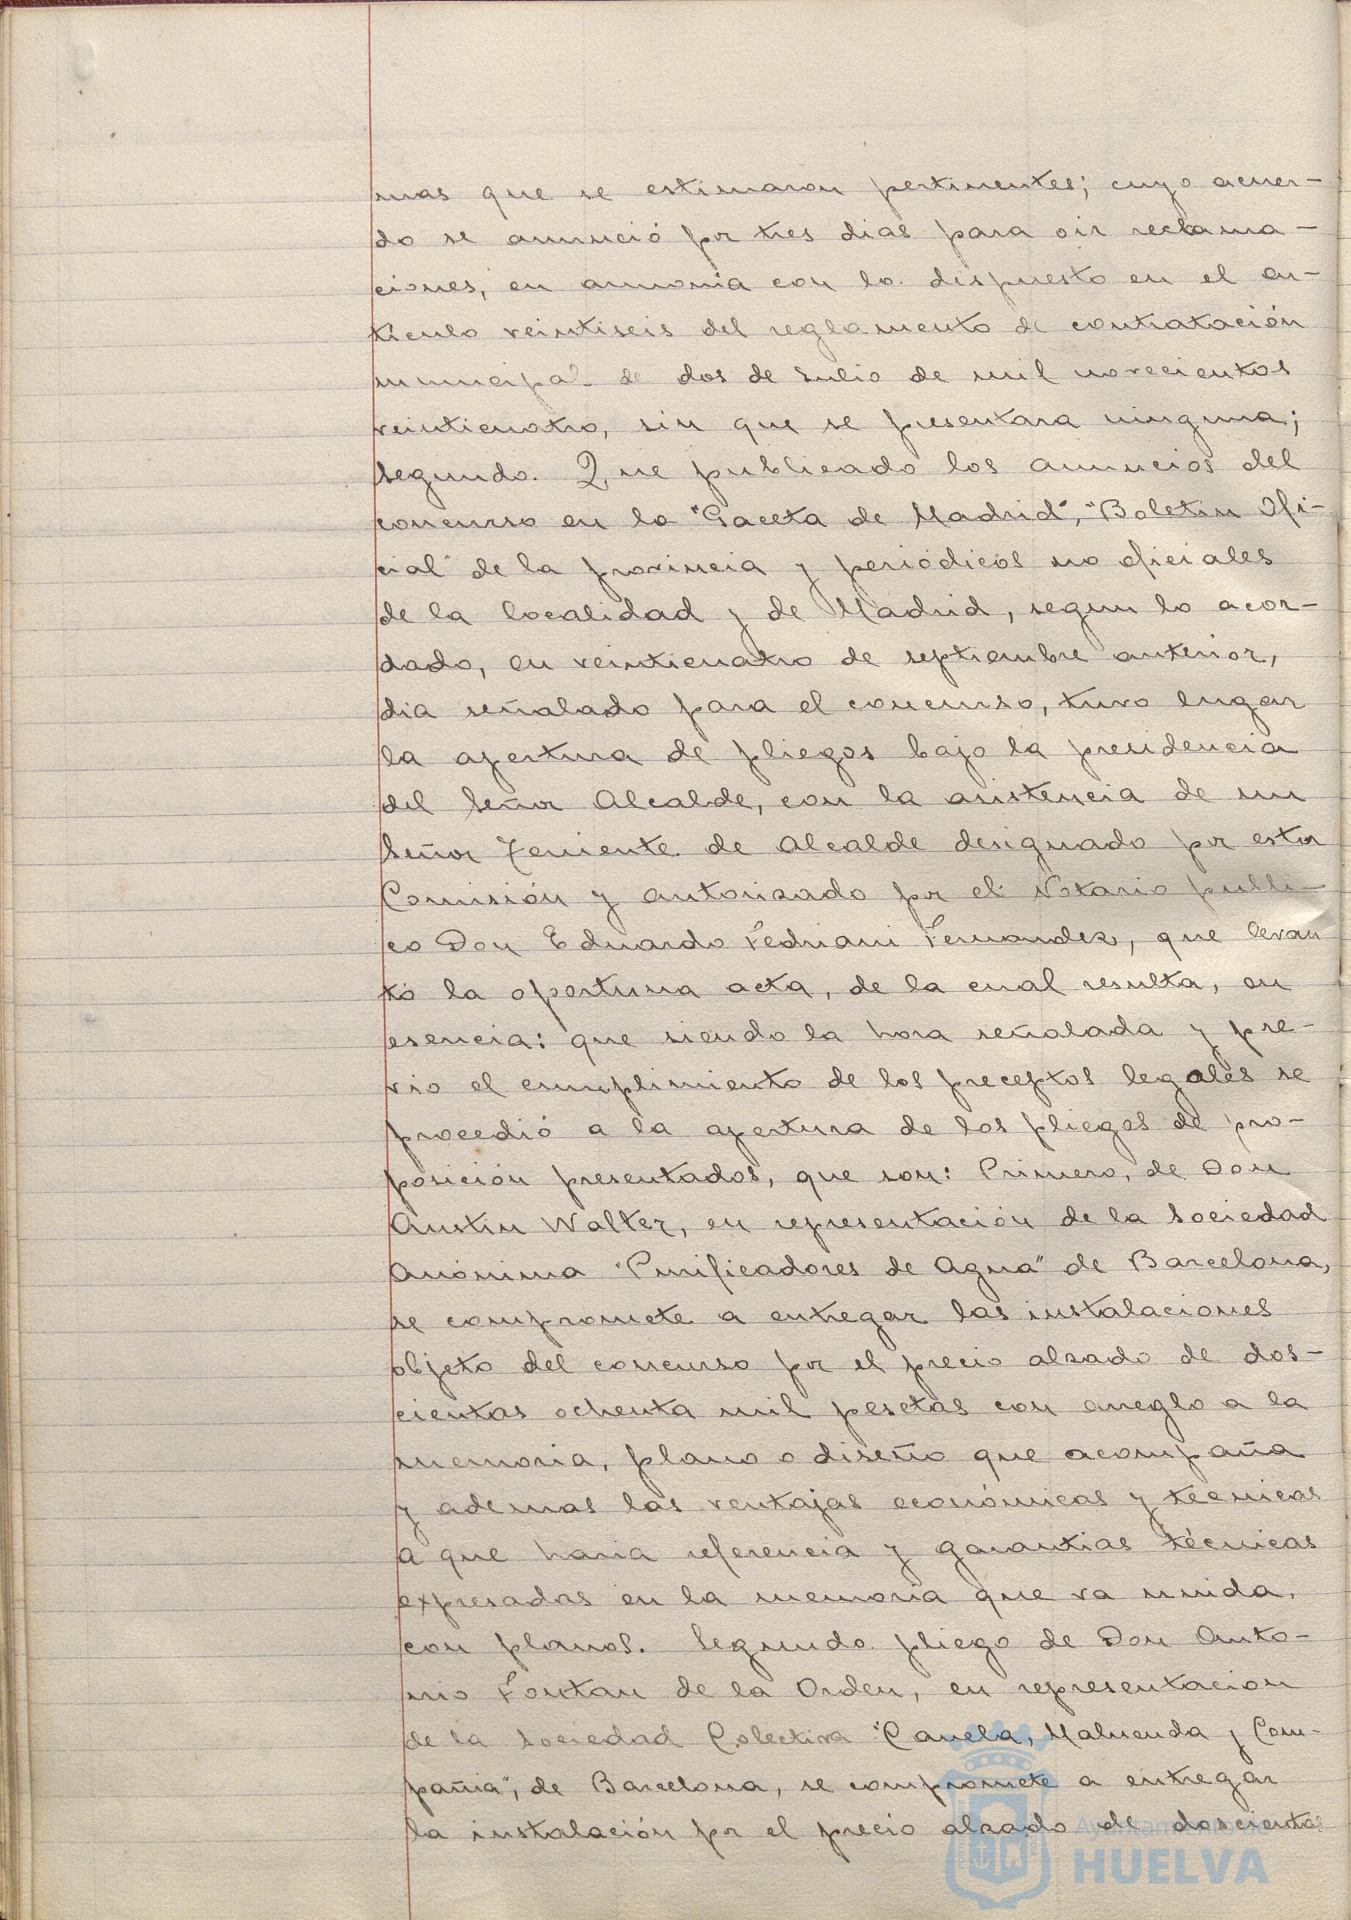 mas que se estimaron pertinentes; cuyo acuer-
do se anunció por tres dias para oir reclama-
ciones, en armonia con lo dispuesto en el ar-
tículo veintiseis del reglamento de contratación
municipal de dos de Julio de mil novecientos
veinticuatro, sin que se presentara ninguna;
Segundo. Que publicado los anuncios del
concurso en la "Gaceta de Madrid", "Boletin Ofi-
cial" de la provincia y periódicos no oficiales
de la localidad y de Madrid, segun lo acor-
dado, en veinticuatro de septiembre anterior,
dia señalado para el concurso, tuvo lugar
la apertura de pliegos bajo la presidencia
del Señor Alcalde, con la asistencia de un
Señor Teniente de Alcalde designado por esta
Comisión y autorizado por el Notario públi-
co Don Eduardo Fedriani Fernandez, que levan
tó la oportuna acta, de la cual resulta, en
esencia: que siendo la hora señalada y pre-
vio el cumplimiento de los preceptos legales se
procedió a la apertura de los pliegos de pro-
posición presentados, que son: Primero, de Don
Austin Walter, en representación de la Sociedad
Anónima "Purificadores de Agua" de Barcelona,
se compromete a entregar las instalaciones
objeto del concurso por el precio alzado de dos-
cientas ochenta mil pesetas con arreglo a la
memoria, plano o diseño que acompaña
y ademas las ventajas económicas y tecnicas
a que haria referencia y garantias técnicas
expresadas en la memoria que va unida,
con planos. Segundo pliego de Don Anto-
nio Fontan de la Orden, en representacion
de la Sociedad Colectiva "Canela, Maluenda y Com-
pañia", de Barcelona, se compromete a entregar
la instalación por el precio alzado de doscientas
Ayuntamiento de
HUELVA